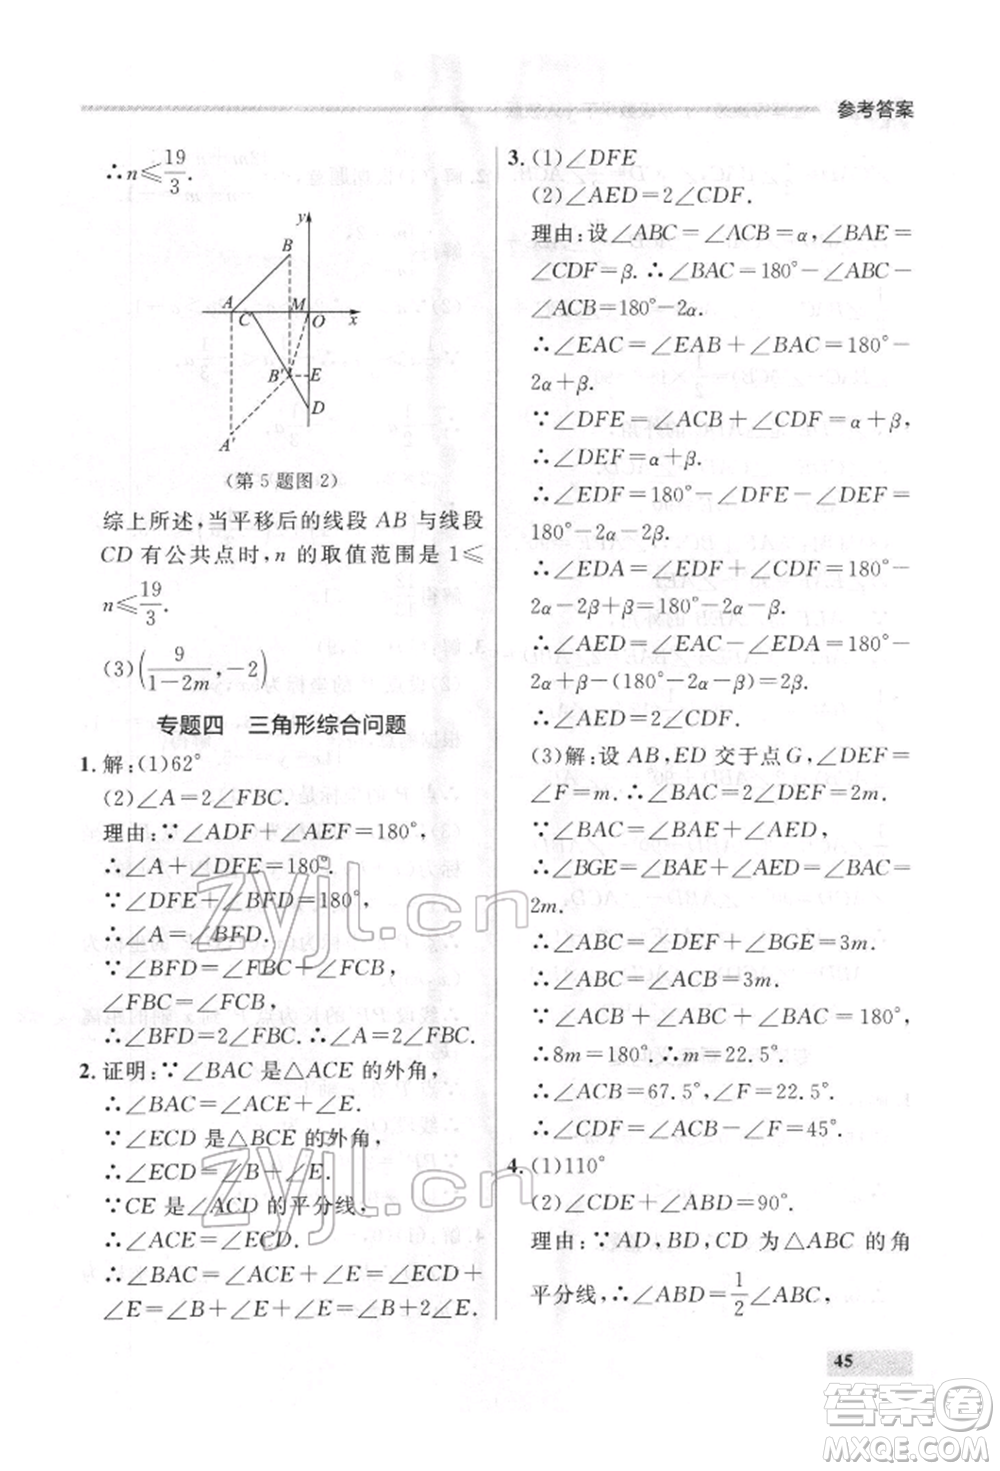 参考答案
∴n≤19/3.
y
B
A
C
M
O
x
B′
E
D
A′
(第 5 题图 2)
综上所述,当平移后的线段 AB 与线段
CD 有公共点时,n 的取值范围是 1≤
n≤19/3.
(3)(9/(1-2m),-2)
专题四 三角形综合问题
1. 解:(1)62°
(2)∠A=2∠FBC.
理由:∵∠ADF+∠AEF=180°,
∴∠A+∠DFE=180°
∵∠DFE+∠BFD=180°,
∴∠A=∠BFD.
∵∠BFD=∠FBC+∠FCB,
∠FBC=∠FCB,
∴∠BFD=2∠FBC.∴∠A=2∠FBC.
2. 证明:∵∠BAC是△ACE的外角,
∴∠BAC=∠ACE+∠E.
∵∠ECD是△BCE的外角,
∴∠ECD=∠B+∠E.
∵CE是∠ACD的平分线,
∴∠ACE=∠ECD.
∴∠BAC=∠ACE+∠E=∠ECD+
∠E=∠B+∠E+∠E=∠B+2∠E.
3. (1)∠DFE
(2)∠AED=2∠CDF.
理由:设∠ABC=∠ACB=α,∠BAE=
∠CDF=β.∴∠BAC=180°-∠ABC-
∠ACB=180°-2α.
∴∠EAC=∠BAE+∠BAC=180°-
2α+β.
∵∠DFE=∠ACB+∠CDF=α+β,
∴∠DEF=α+β.
∴∠EDF=180°-∠DFE-∠DEF=
180°-2α-2β.
∴∠EDA=∠EDF+∠CDF=180°-
2α-2β+β=180°-2α-β.
∴∠AED=∠EAC-∠EDA=180°-
2α+β-(180°-2α-β)=2β.
∴∠AED=2∠CDF.
(3)解:设 AB,ED 交于点 G,∠DEF=
∠F=m.∴∠BAC=2∠DEF=2m.
∵∠BAC=∠BAE+∠AED,
∴∠BGE=∠BAE+∠AED=∠BAC=
2m.
∴∠ABC=∠DEF+∠BGE=3m.
∴∠ACB=∠ABC=3m.
∵∠ABC+∠ACB+∠BAC=180°,
∴8m=180°.∴m=22.5°.
∴∠ACB=67.5°,∠F=22.5°.
∴∠CDF=∠ACB-∠F=45°.
4. (1)110°
(2)∠CDE+∠ABD=90°.
理由:∵AD,BD,CD 为△ABC 的角
平分线,∴∠ABD=1/2∠ABC,
45
zyjl.cn
zyjl.cn
答案圈
MXQE.COM